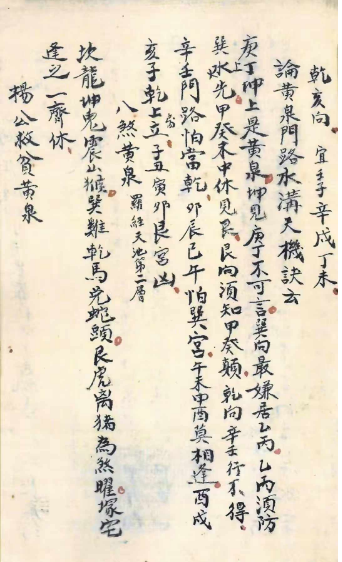 乾亥向 宜壬子辛戌丁未
論黃泉門路水溝天機訣云
庚丁坤上是黃泉坤見庚丁不可言巽向最嫌居乙丙乙丙須防
巽水上先甲癸未中休見艮艮向須知甲癸顛乾向辛壬行不得
辛壬門路怕當乾卯辰巳午怕巽宮午未申酉莫相逢酉戌
亥子乾上立子丑寅卯艮宮凶
八煞黃泉 羅經天池第二層
坎龍坤兔震山猴巽雞乾馬兌蛇頭艮虎离猪為煞曜塚宅
逢之一齊休
楊公救貧黃泉